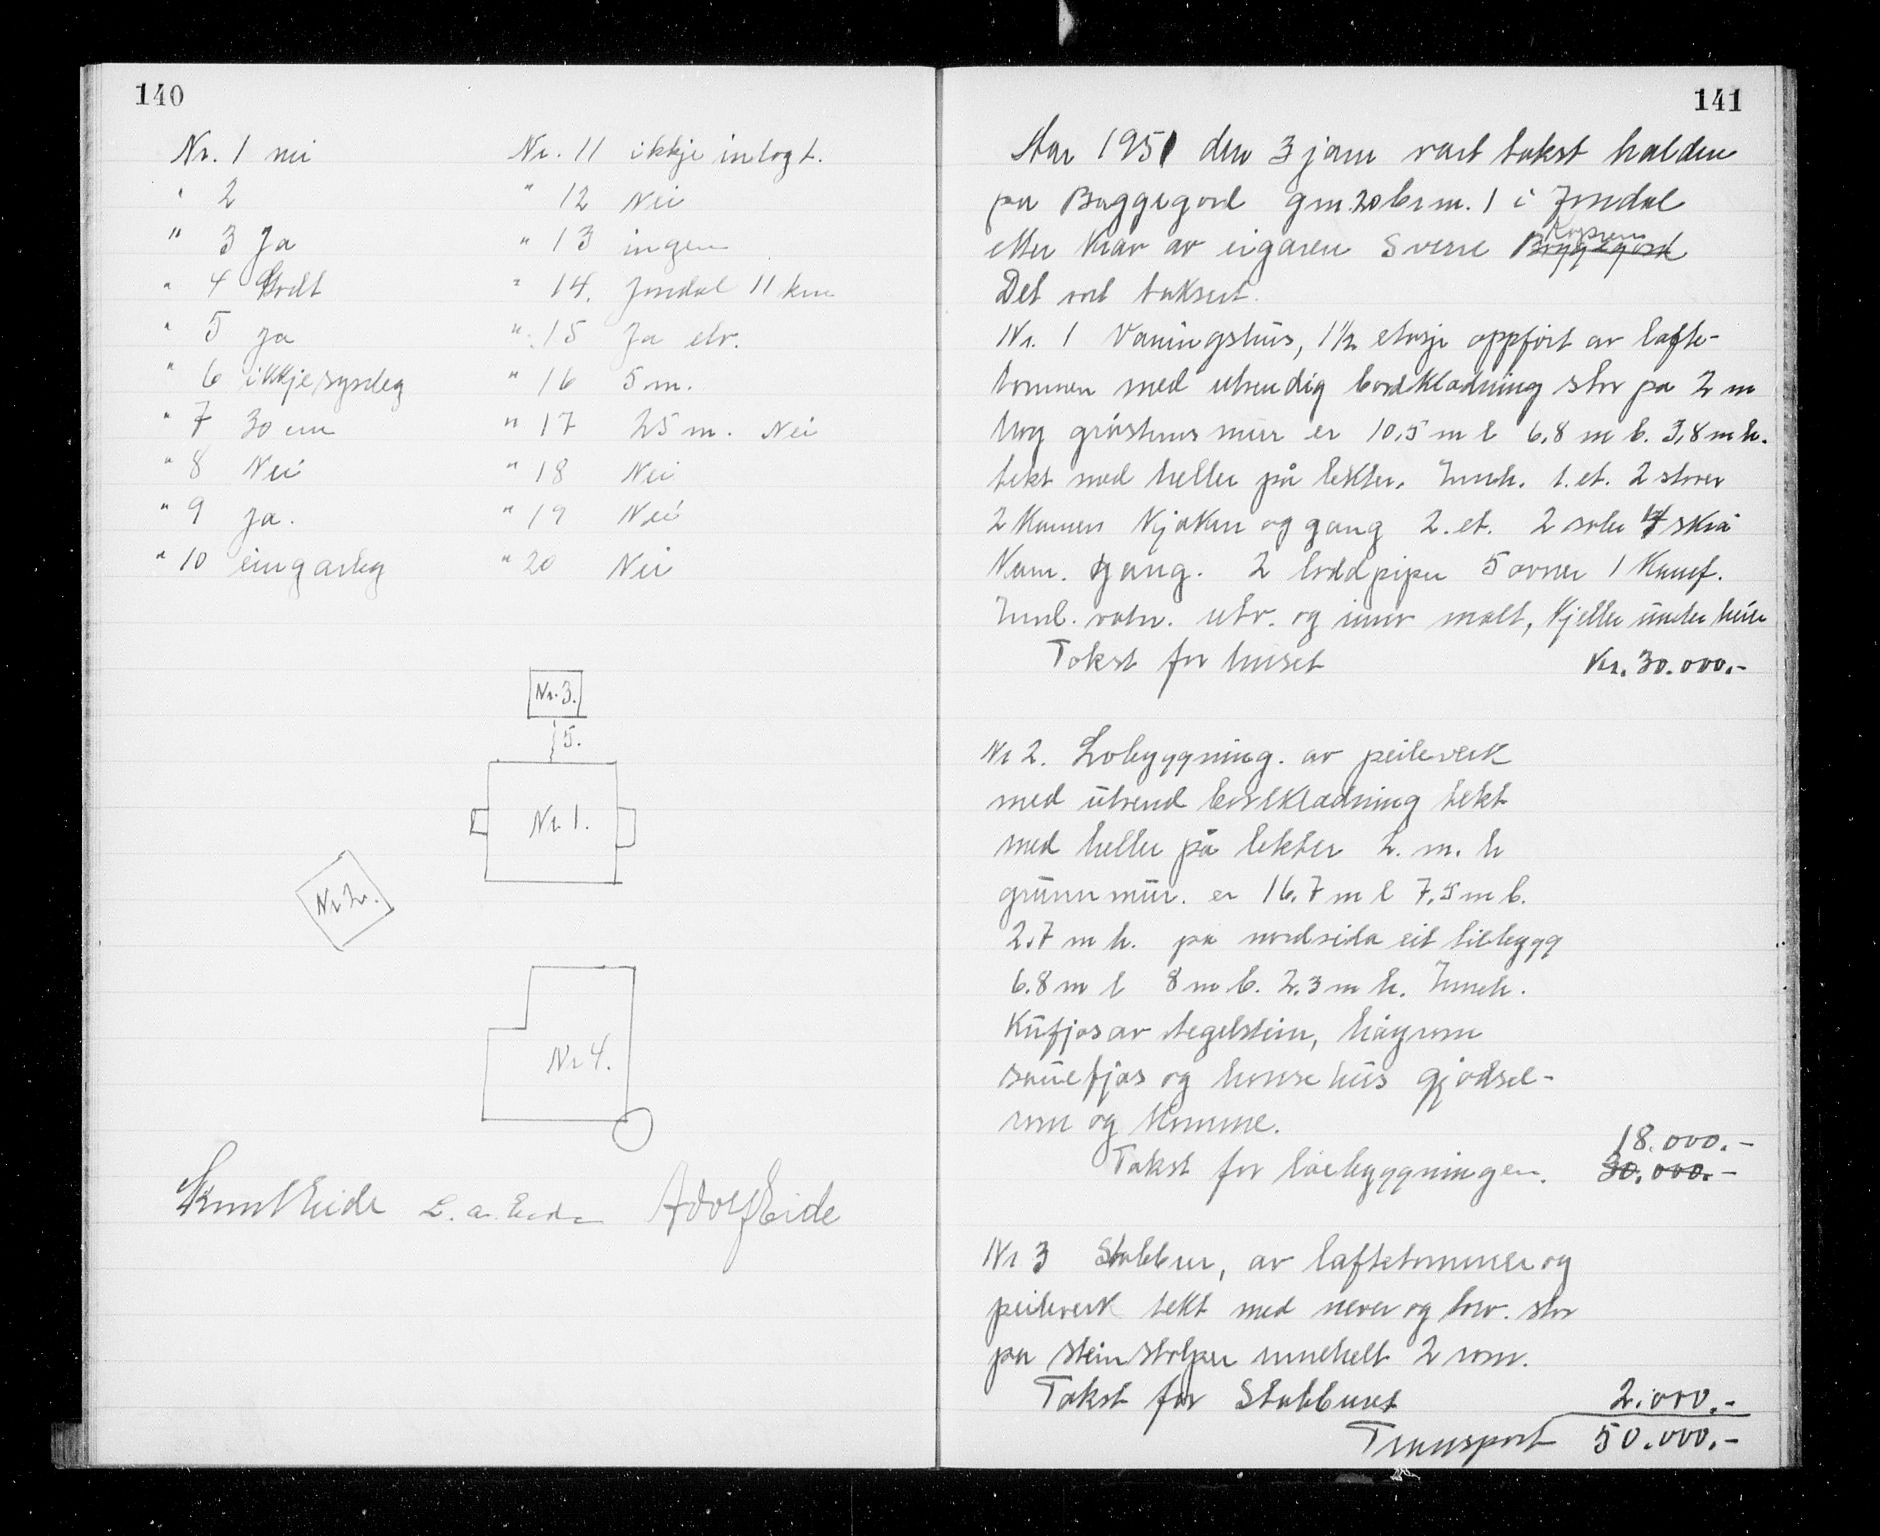 140
Nr. 1 nei
" 2
" 3 Ja
" 4 Godt
" 5 Ja
" 6 ikkje synleg
" 7 30 cm
" 8 Nei
" 9 ja.
" 10 eingasleg
Nr. 11 ikkje innlagt.
" 12 Nei
" 13 ingen
" 14. Jondal 11 km
" 15 Ja elv.
" 16 5 m.
" 17 25 m. Nei
" 18 Nei
" 19 Nei
" 20 Nei
Nr. 3.
5.
Nr 1.
Nr 2.
Nr 4.
Knut Eide Adolf Eide
141
Aar 1951 den 3 jan vart takst halden
pa Byggegord gnr. 20 brn. 1 i Jondal
etter krav av eigaren Sverre Byggegord
Det vart taksert.
Nr. 1 Vaningshus, 1½ etasje oppført av lafte-
tommer med utvendig bordkladning stor pa 2 m
hog gråsteins mur er 10,5 m l 6,8 m b. 3,8 m h.
tekt med heller på lekter. Inneh. 1. et. 2 stover
2 kamers kjøken og gang 2. et. 2 saler 4 skrå
kam. gang. 2 brddpiper 5 ovner 1 kamf.
Innl. vatn. utv. og innv malt, kjeller under heile
Takst for huset Kr. 30.000.-
Nr 2. Lobyggning. av peileverk
med utvend bordkladning tekt
med heller på lekter 2. m. h
grunnmur. er 16.7 m l 7,5 m b.
2.7 m h. på nordsida eit tilbygg
6.8 m l 8 m b. 2.3 m h. Inneh.
Kufjos av tegelstein, høyrom
sauefjos og honse hus gjødsel-
rom og tomme.
18.000.-
Takst for løebyggningen. 30.000.-
Nr 3 Stabbur, av laftetommer og
peileverk tekt med never og torv. stor
pa stein stolper innehelt 2 rom.
Takst for Stabburet 2.000.-
Transport 50.000.-